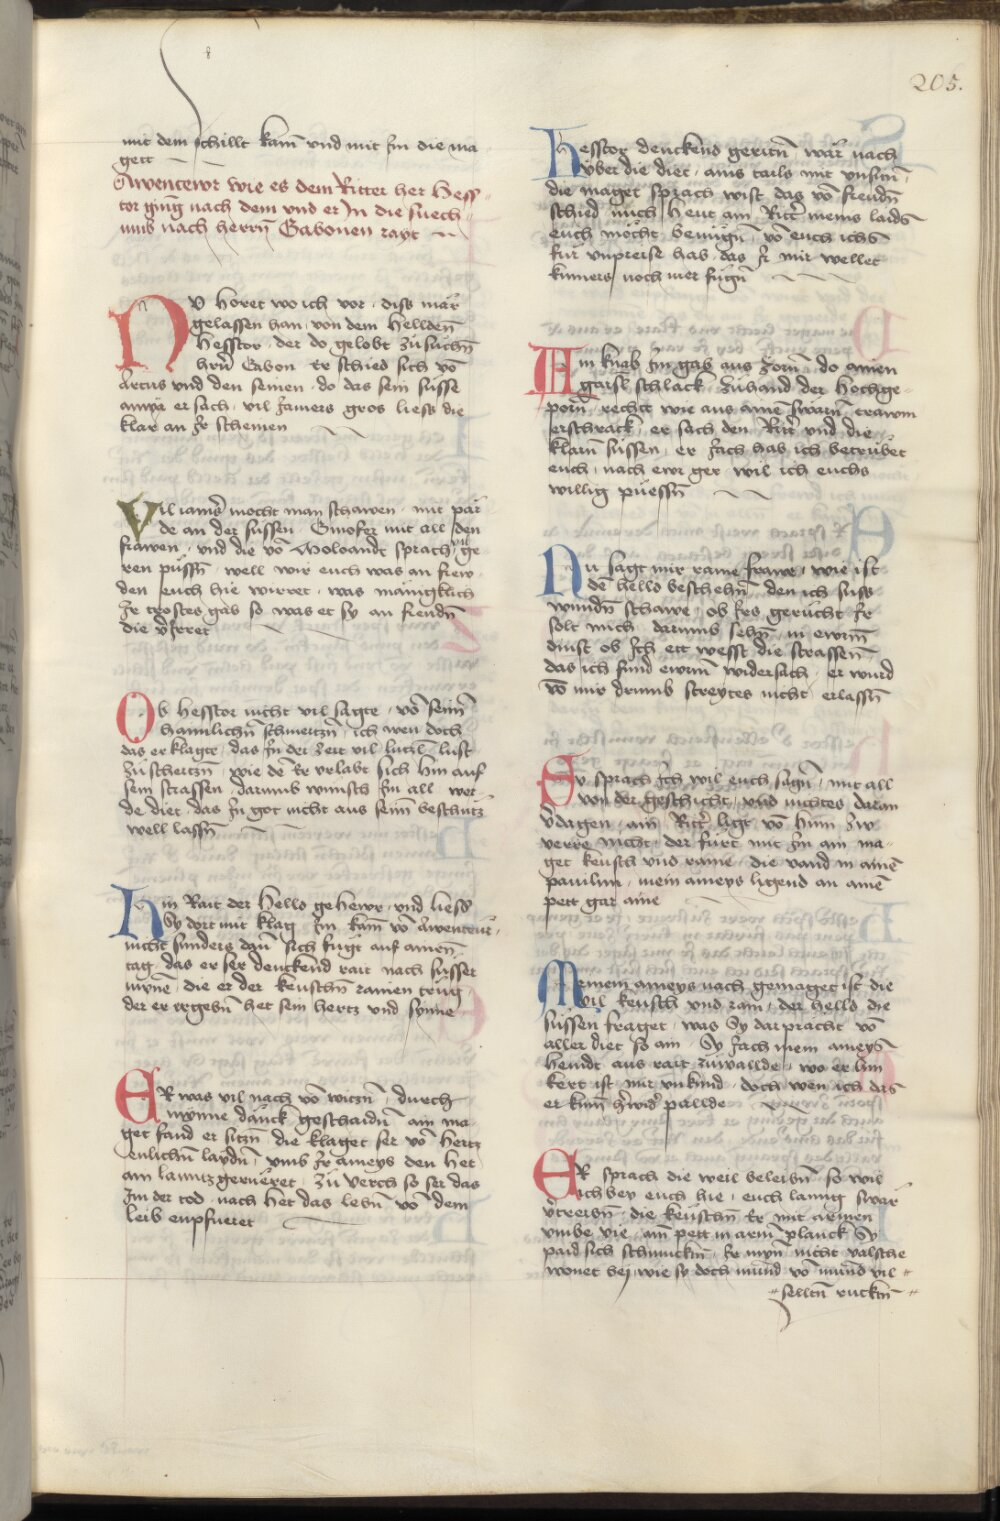 205.
mit dem schillt kam̄ vnd mit jm die ma
gett
Awentewr wie es dem Ritter her Hess-
tor ging nach dem vnd er In die suech
umb nach herrn Gabonen rayt
NV horet wo ich vor diss mär
gelassen han von dem hellden
Hesstor der do gelobt zu suchn̄
hrn̄ Gabon Er schied sich vō
Artus vnd den seinen do das sein süsse
amya ersach vil jamers gros liess die
klar an jr scheinen
Vil iamers mocht man schawen mit pär
de an der süssen Ginofer mit all den
frawen vnd die vō Moloandt sprach
ren püssn̄ well wir euch was an frew
den euch hie wirret was mänigklich
jr trostes gab so was et sy an freudn̄
die
Ob Hesstor nicht vil sagte vō seinn̄
hamlichn̄ schmertzn̄ ich wen doch
das er klagte das jn der zeit vil lutzil lust
zu schertzn̄ wie dē Er vrlabt sich hin auf
sein strassen darumb wünsch jm all wer
de diet das jn got nicht aus seinn̄ beschutz
well lassn̄
Hin Rait der Hello gehewr vnd liess
Sy dort mit klag jm kam̄ vō awenteur
nicht sunders dan̄ sich fugt auf ainen
tag das er ser denckend rait nach süsser
mynē die er der keuschn̄ rainen trüg
der er ergebn̄ het sein hertz vnd synne
ER was vil nach vō witzn̄ durch
mynne danck geschaidn̄ ain ma-
get fand er sitzn̄ die klaget ser vō hertz
enlichn̄ laydn̄ vmb jr ameys den het
ain lanntz gerueret zu verch so ser das
jm der tod nach het das lebn̄ vō dem
leib enpfueret
Hesstor denckend geritn̄ wär nach
vber die diet ains tails mit vnsitn̄
die maget sprach wist das vō freudn̄
schied mich heut ain Ritter meins laids
euch mocht benügn̄ vō euch ichs
für vnpreise hab das jr mir wellet
kumers noch mer fügn̄
Ain knab jm gab aus zorn̄ do ainen
gaisl schlack zuhand der hochge-
porn̄ rechtt wie aus ainē swarn̄ trawm
erschrack er sach den Ritter vnd die
klarn̄ süssen er jach hab ich betrübet
euch nach ewr ger wil ich euchs
willig püessn̄
Nu sagt mir raine frawe wie ist
dē hello beschehn̄ den ich suss
wundn̄ schawe ob Es gerücht jr
solt mich darumb sehn̄ in ewrm̄
dinst ob jch ett wesst die strassen
das ich fund ewrn̄ widersach er wurd
vō mir drumb streytes nicht erlassn̄
Sy sprach jch wil euch sagn̄ mit all
von der geschicht vnd nichtes daran
v̄dagen ain Ritter ligt vō hinn
verre nicht der fürt mit jm ain ma-
get keusch vnd raine die vand in ainē
pauilun mein ameys ligend an ainē
pett gar aine
Meinem ameys nach gemaget ist die
vil keusch vnd rain der hello die
süssen fraget was Sy dar pracht vō
aller diet so ain Sy jach mein ameys
heindt aus rait zuwallde wo er hin
kert ist mir vnkund doch wen ich das
er kum̄ herwider pallde
ER sprach die weil beleibn̄ so wil
ich bey euch hie euch lannig swär
v̄treibn̄ die keuschn̄ Er mit armen
vmbe vie am̄ pett in arm̄ planck Sy
paid sich schmucktn̄ jr myn̄ nicht valsche
wonet bej wie sy doch mund vō mund vil
selltn̄ rucktn̄